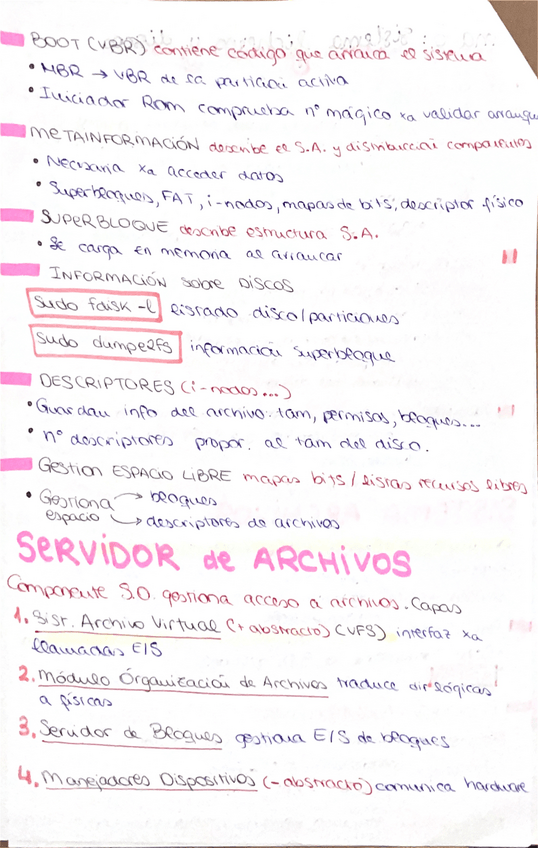 BOOT (VBR) contiene código que arranca el sistema
• MBR → VBR de la partición activa
• Iniciador Rom comprueba nº mágico xa validar arranque
METAINFORMACIÓN describe el S.A. y distribución compartidos
• Necesaria xa acceder datos
• Superbloques, FAT, i-nodos, mapas de bits, descriptor físico
SUPERBLOQUE describe estructura S.A.
• Se carga en memoria al arrancar
INFORMACIÓN sobre DISCOS
sudo fdisk -l listado disco/particiones
sudo dumpe2fs información superbloque
DESCRIPTORES (i-nodos...)
• Guardan info del archivo: tam, permisos, bloques...
• nº descriptores propor. al tam del disco.
Gestion ESPACIO LIBRE mapas bits / listas recursos libres
• Gestiona → bloques
espacio → descriptores de archivos
SERVIDOR de ARCHIVOS
Componente S.O. gestiona acceso a archivos. Capas
1. Sist. Archivo Virtual (+ abstracto) (VFS) interfaz xa
llamadas E/S
2. Módulo Organización de Archivos traduce dir lógicas
a físicas
3. Servidor de Bloques gestiona E/S de bloques
4. Manejadores Dispositivos (- abstracto) comunica hardware